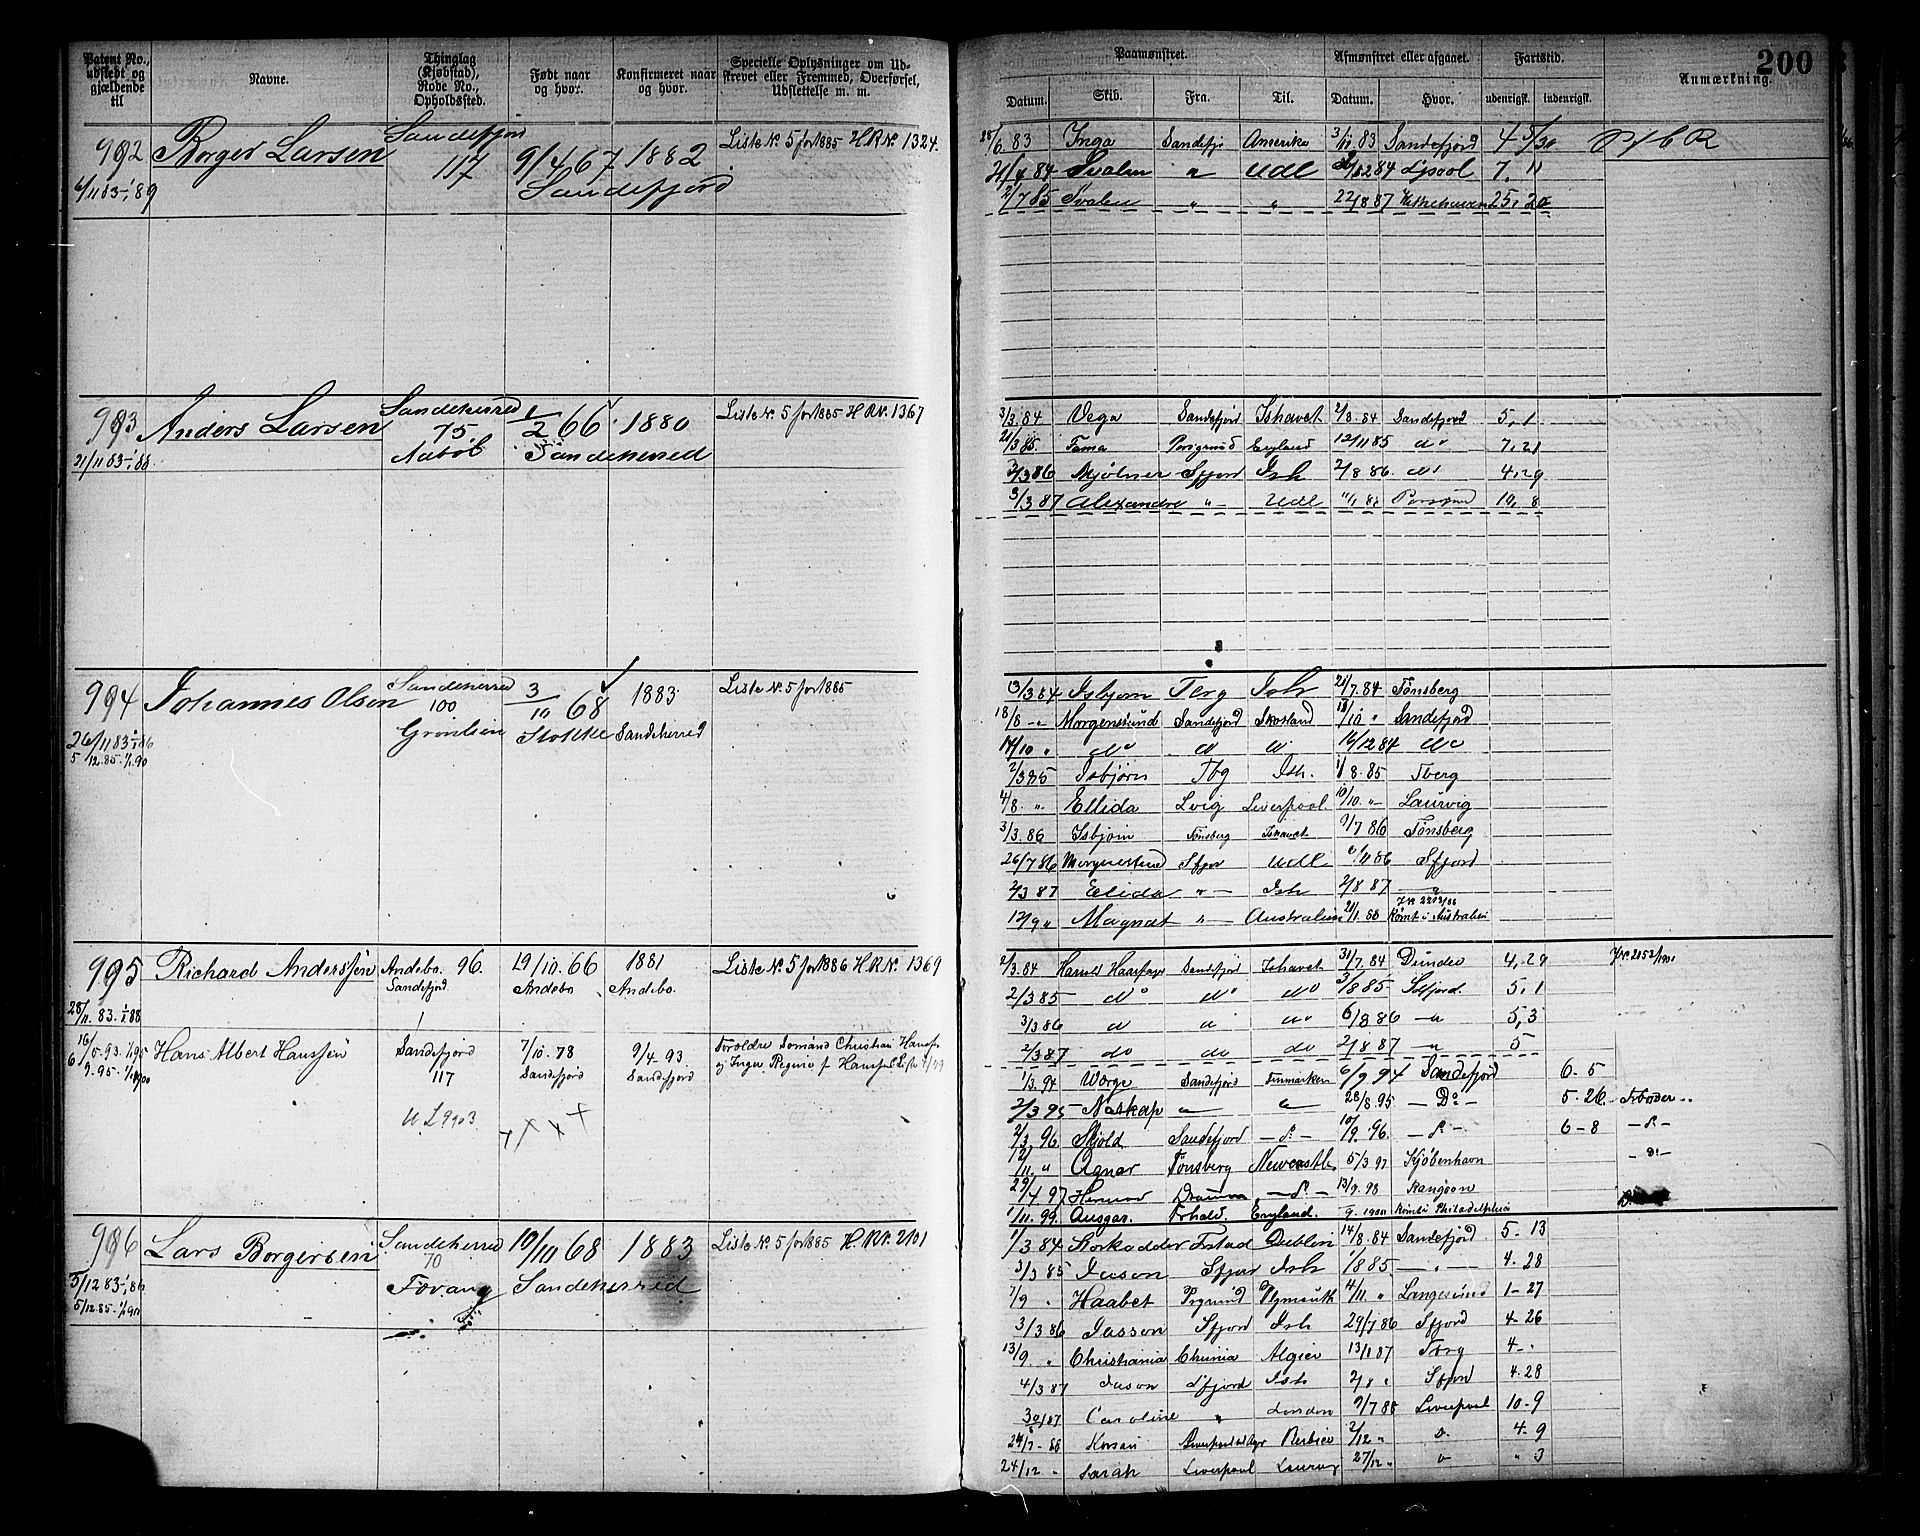 Patent No., udstedt og gjældende til
Navne.
Thinglag (Kjøbstad), Rode No., Opholdssted.
Født naar og hvor.
Konfirmeret naar og hvor.
Specielle Oplysninger om Udskrevet eller Fremmed, Overførsel, Udslettelse m. m.
992 Borger Larsen Sandefjord 9/4 67 1882 Liste N. 5 for 1885 H.R.N. 1324.
117 Sandefjord
6/11 83-1/1 89
993 Anders Larsen Sandeherred 1/2 66 1880 Liste N. 5 for 1885 H.R.N. 1367
75
21/11 83-1/1 86 Sandeherred
994 Johannes Olsen Sandeherred 3/10 68 1883 Liste N. 5 for 1885
100
26/11 83-1/1 86 Stokke Sandeherred
5/12.85-1/1.90
995 Richard Anderssen Andebo. 96. 19/10.66 1881 Liste N. 5 for 1886 H.R.N. 1369
Sandefjord Andebo Andebo.
28/11.83.1/1.88
Hans Albert Hanssen Sandefjord 7/10.78 9/4.93.
117 Sandefjord Sandefjord
996 Lars Borgersen Sandeherred 10/10 68 1883 Liste N. 5 for 1885 H.R.N. 2101
70
5/12 83-1/1 86 Sandeherred
5/12.85-1/1 90
200
Paamønstret.
Afmønstret eller afgaaet.
Fartstid.
Anmærkning.
Datum. Skib. Fra. Til. Datum. Hvor. udenrigsk. indenrigsk.
25/6 83 Inga Sandefj Amerika 3/11 83 Sandefjord
21/4 84 Svalen " Udl 84 Lpool 7, 11
2/7 85 Svalen " " 22/8 87 25, 20
3/3.84 Vega Sandefjord Ishavet 2/8.84 Sandefjord 5, 1
21/3 85. Fama Porsgrund England 12/11 85 do 7, 21
3/3 86 Mjølner Sfjord Ish 2/8 86. do 4, 29
3/3 87 Alexandra " Udl 10, 8
3/3.84 Isbjørn Tbrg Ish 28/7.84 Tønsberg
18/8 -" Morgenstund Sandefjord Skotland 18/10 " Sandefjord
17/10 " do do do 16/12 84 do
2/3 85 Isbjørn Tbg Ish. 1/8.85 Tberg
4/8. " Ellida Lvig Liverpool. 10/10 -" Laurvig
3/3.86 Isbjørn Tønsberg Ishavet 9/7 86 Tønsberg
26/7 86 Morgenstund Sfjor Udl 86 Sfjord
2/3 87 Elida " Ish 2/8 87 "
12/9 " Magnat " Australien 21/1.88 Rømt i Australien
2/3.84 Harald Haarfager Sandefjord Ishavet 31/7.84 Dundee 4, 29
2/3 85 do do do 3/8 85 Sdfjord. 5, 1
3/3 86 do " do 6/8 86 " 5, 3
2/3 87 do do do 2/8 87 " 5
1/3.94 Værge Sandefjord Finmarken 6/9 94 Sandefjord 6-5
2/3 95 Naskap " " 28/8.95 -Do- 5-26.
2/3.96 Skjold Sandefjord -do- 10/9.96. -do- 6-8 -do-
12/11 " Agnar Tønsberg Newcastle 5/3.97 Kjøbenhavn -do-
29/4.97 Hermod Drammen -do- 13/9.98 Rangoon
1/11.99. Ansgar. Frhald. England. 9.1900 Rømt i Philadelphia
1/3 84 Storkodder Fstad Dublin 14/8.84 Sandefjord 5-13
3/3 85 Jason Sfjor Ish 1/8 85. " 4-28
7/9 " Haabet Prgrund Plymouth 14/11 " Langesund 1-27
3/3 86 Jasson Sfjord Ish 29/7 86 Sfjord 4-26
13/9. " Christiania Chrinia Algier 13/1 87 Tbrg 4-"
4/3 87 Jason Sfjord Ish 2/8 " Sfjord 4.28
Caroline " London 9/7 88 Liverpool 10-9
Korsar 2/12 " " 4-9
24/12 " Sarah Liverpool Laurvig 27/12 " " " 3